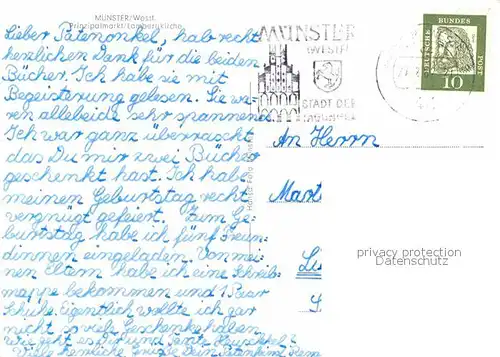 MÜNSTER/Westf.
Prinzipalmarkt/Lambertikirche
Lieber Patenonkel, hab recht
herzlichen Dank für die beiden
Bücher. Ich habe sie mit
Begeisterung gelesen. Sie wa-
ren allebeide sehr spannend.
Ich war ganz überrascht
das Du mir zwei Bücher
geschenkt hast. Ich habe
meinen Geburtstag recht
vergnügt gefeiert. Zum Ge-
burtstag habe ich fünf Freun-
dinnen eingeladen. Von mei-
nen Eltern habe ich eine Schreib-
mappe bekommen und 1 Paar
Schuhe. Eigentlich wollte ich gar
nicht so viele Geschenke haben.
Wie geht es Dir und Tante
Viele herzliche Grüße Dein Patenkind
MÜNSTER
WESTF
STADT DER
DEUTSCHE
BUNDES
POST
10
An Herrn
Mart
privacy protection
Datenschutz